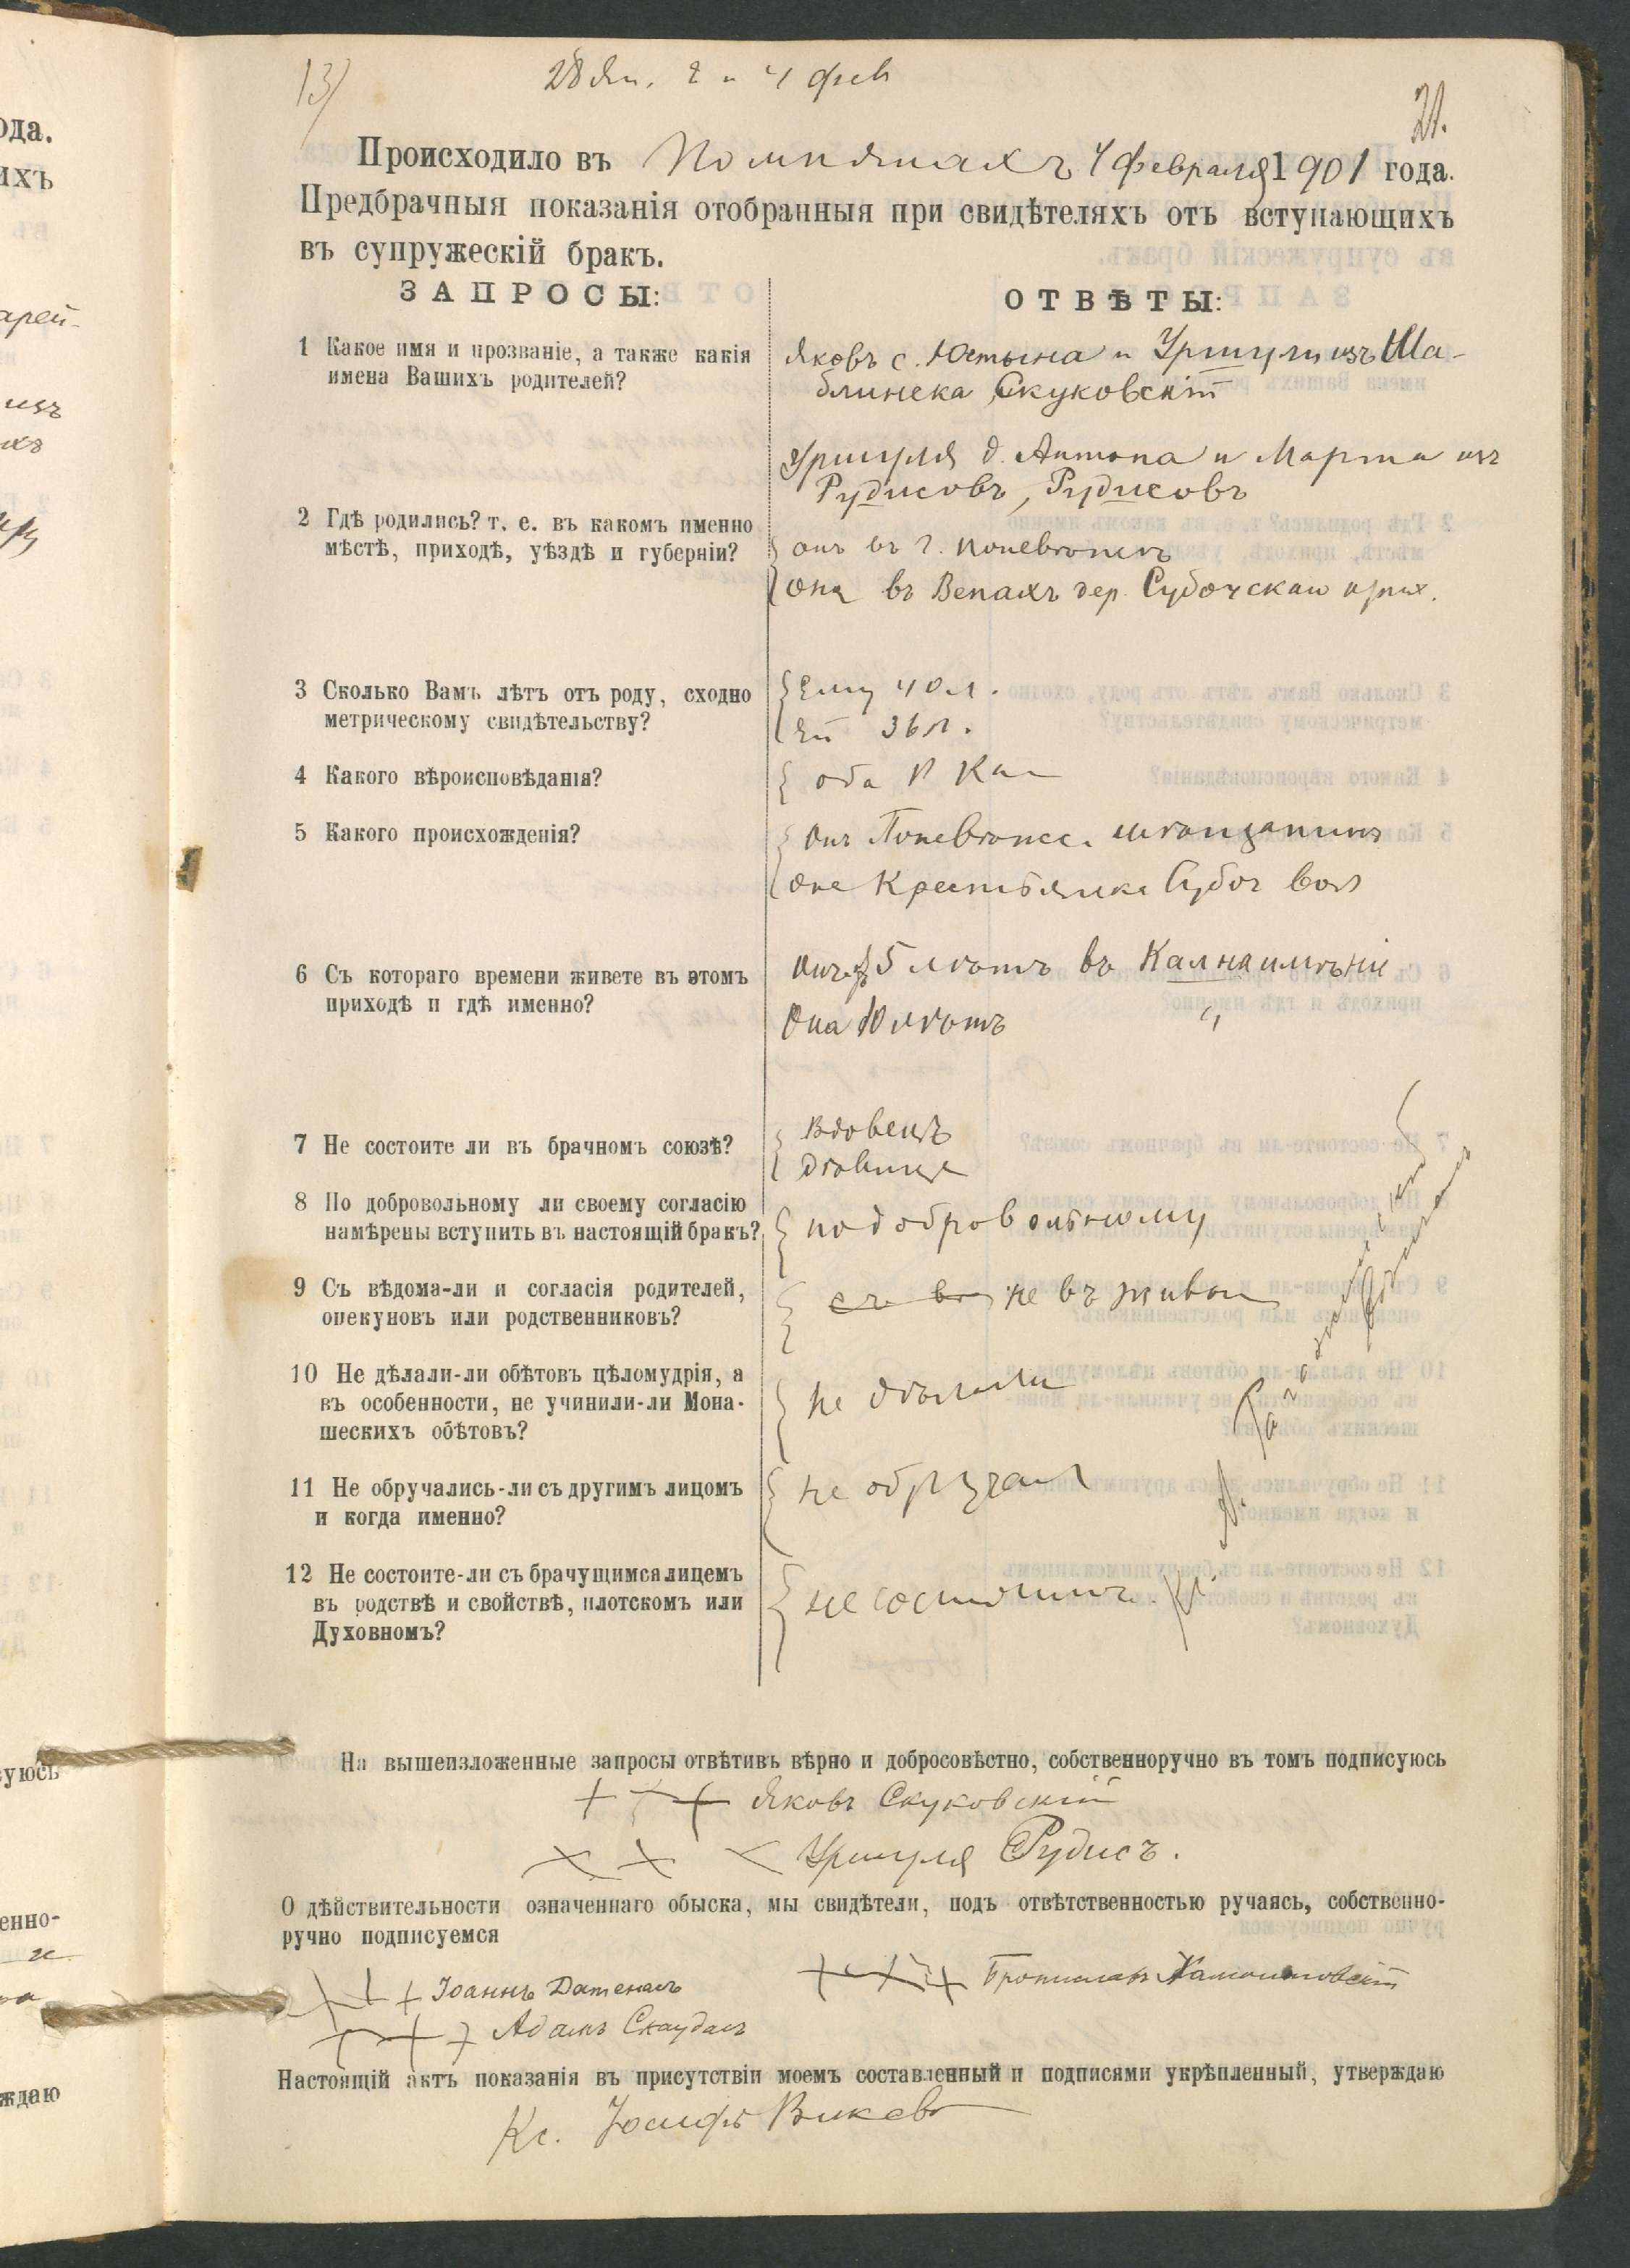 13)
28 Ян. 2 и 4 фев
21.
Происходило въ Помпянахъ 4 февраля 1901 года.
Предбрачныя показанія отобранныя при свидѣтеляхъ отъ вступающихъ
въ супружескій бракъ.
ЗАПРОСЫ:
ОТВѢТЫ:
1 Какое имя и прозваніе, а также какія
имена Вашихъ родителей?
Яковъ с. Юстына и Уршули изъ Ша-
блинска Скуковскій
Уршуля д. Антона и Марта изъ
Рудисовъ, Рудисовъ
2 Гдѣ родились? т. е. въ какомъ именно
мѣстѣ, приходѣ, уѣздѣ и губерніи?
онъ въ г. Поневѣжѣ
она въ Вепахъ дер. Субочскаго прих.
3 Сколько Вамъ лѣтъ отъ роду, сходно
метрическому свидѣтельству?
Ему 40 л.
Ей 36 л.
4 Какого вѣроисповѣданія?
оба Р Ка
5 Какого происхожденія?
Онъ Поневѣжс. мѣщанинъ
Она Крестьянка Субоч вол
6 Съ котораго времени живете въ этомъ
приходѣ и гдѣ именно?
Онъ 5 лѣтъ въ Калнаимѣніе
Она 10 лѣтъ "
7 Не состоите ли въ брачномъ союзѣ?
вдовецъ
дѣвица
8 По добровольному ли своему согласію
намѣрены вступить въ настоящій бракъ?
по добровольному
9 Съ вѣдома-ли и согласія родителей,
опекуновъ или родственниковъ?
не въ живы
10 Не дѣлали-ли обѣтовъ цѣломудрія, а
въ особенности, не учинили-ли Мона-
шескихъ обѣтовъ?
не дѣлали
11 Не обручались-ли съ другимъ лицомъ
и когда именно?
не обручал
12 Не состоите-ли съ брачущимся лицемъ
въ родствѣ и свойствѣ, плотскомъ или
Духовномъ?
не состоимъ
На вышеизложенные запросы отвѣтивъ вѣрно и добросовѣстно, собственноручно въ томъ подписуюсь
+ + + Яковъ Скуковскій
× × × Уршуля Рудисъ.
О дѣйствительности означеннаго обыска, мы свидѣтели, подъ отвѣтственностью ручаясь, собственно-
ручно подписуемся
+ + + Іоаннъ Датенасъ
+ + + Брониславъ
+ + + Адамъ Скаудасъ
Настоящій актъ показанія въ присутствіи моемъ составленный и подписями укрѣпленный, утверждаю
Кс. Іосифъ